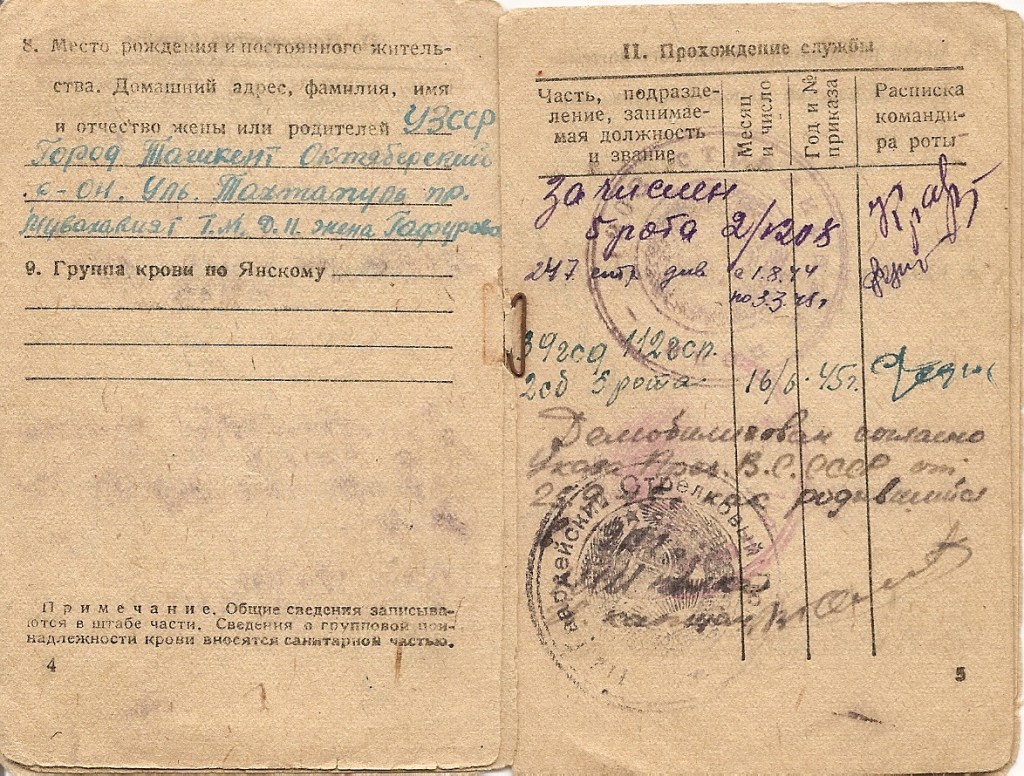 8. Место рождения и постоянного житель-
ства. Домашний адрес, фамилия, имя
и отчество жены или родителей УзССР
Город Ташкент Октяберский
р-он. Уль Тахтапуль пр.
Т. М. Д. Н. жена Гафурова
9. Группа крови по Янскому
Примечание. Общие сведения записыва-
ются в штабе части. Сведения о групповой при-
надлежности крови вносятся санитарной частью.
4
II. Прохождение службы
Часть, подразде-
ление, занимае-
мая должность
и звание
Месяц
и число
Год и №
приказа
Расписка
команди-
ра роты
Зачислен
5 рота 2/1208
247 стр див с 1.8.44
по 3.3.45г
39гсд 112гсп.
2сб 5 рота 16/6. 45г.
Демобилизован согласно
Указа През. В.С. СССР от
как родившийся
Гвардейский Стрелковый
капитан
5